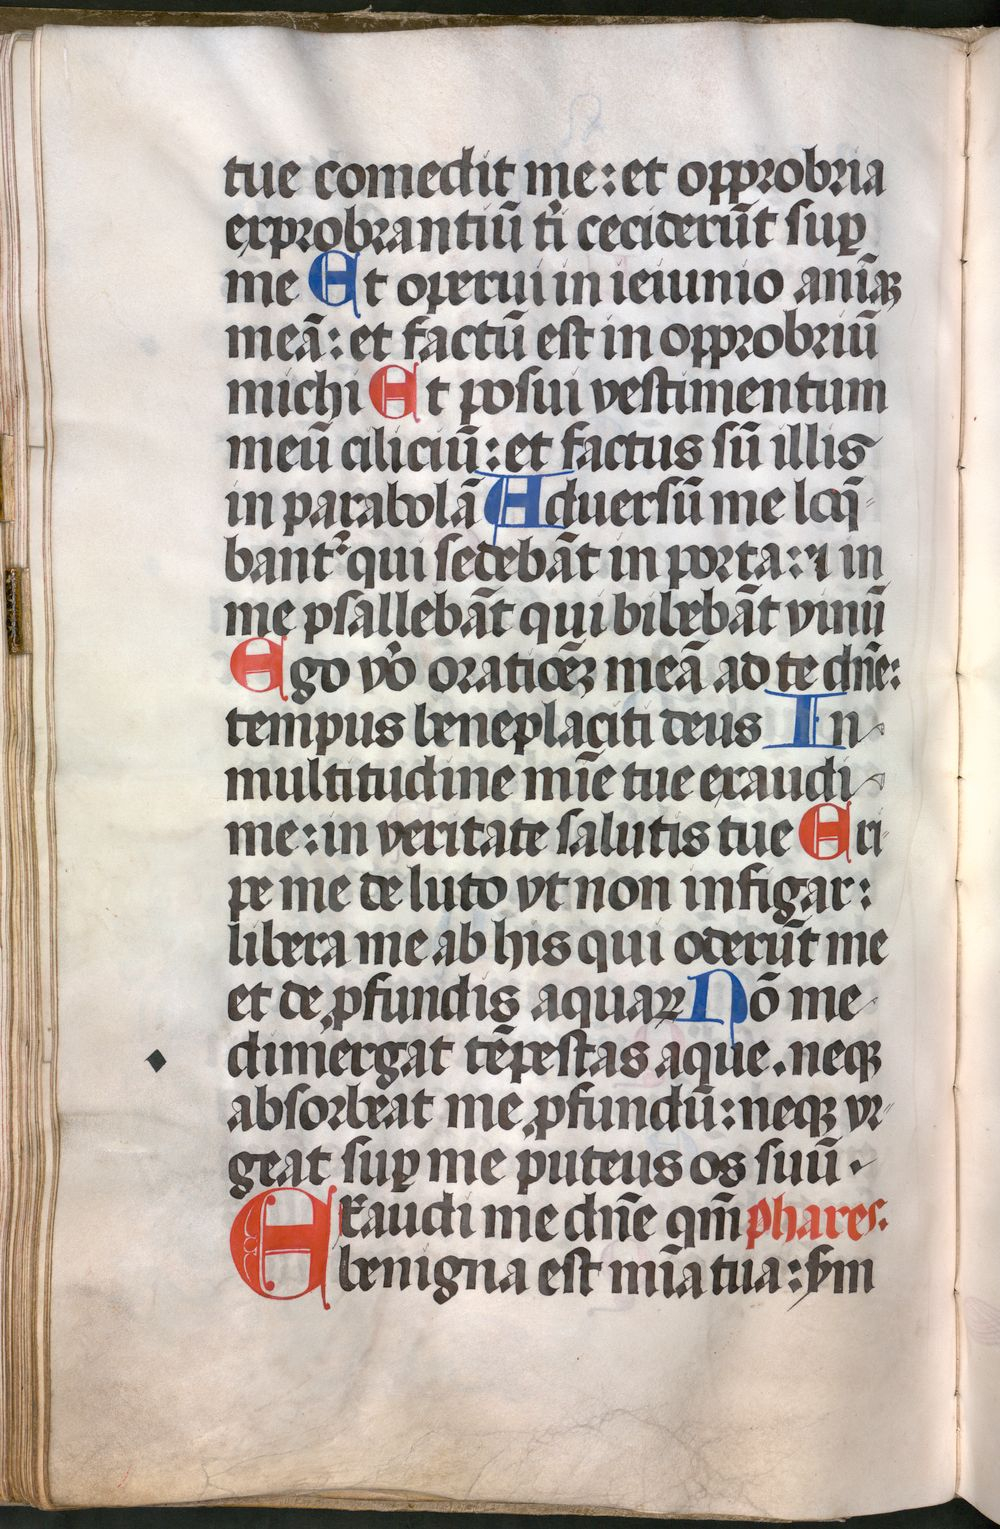 tue comedit me: et opprobria
exprobrantiū ti ceciderūt sup̱
me Et operui in ieiunio anīaꝫ
meā: et factū est in opprobriū
michi Et posui vestimentum
meū ciliciū: et factus sū illis
in parabolā Aduersū me loq̄-
bantᷣ qui sedebāt in porta: ⁊ in
me psallebāt qui bibebāt vinū
Ego v̊o oratiōeꝫ meā ad te dn̄e:
tempus beneplaciti deus In
multitudine mīe tue exaudi
me: in veritate salutis tue Eri-
pe me de luto vt non infigar:
libera me ab his qui oderūt me
et de ꝓfundis aquaꝝ Nō me
dimergat tēpestas aque. neqꝫ
absorbeat me ꝓfundū: neqꝫ vr-
geat suꝑ me puteus os suū.
Exaudi me dn̄e qm̄ phares.
benigna est mīa tua: ẜm